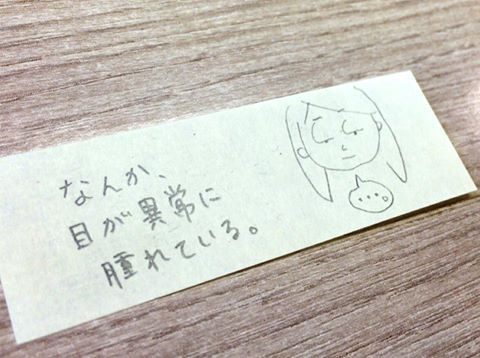 なんか、
目が異常に
腫れている。
…。